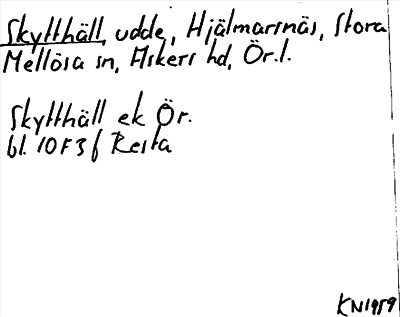 Skytthäll, udde, Hjälmarsnäs, Stora
Mellösa sn, Askers hd, Ör.l.
Skytthäll ek Ör.
bl. 10F3f Resta
KN1959